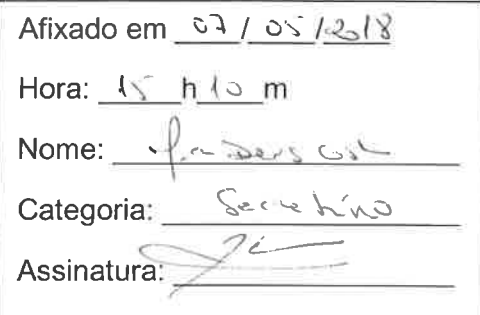 Afixado em 07 / 05 / 2018
Hora: 15 h 10 m
Nome:
Categoria: Secretário
Assinatura: